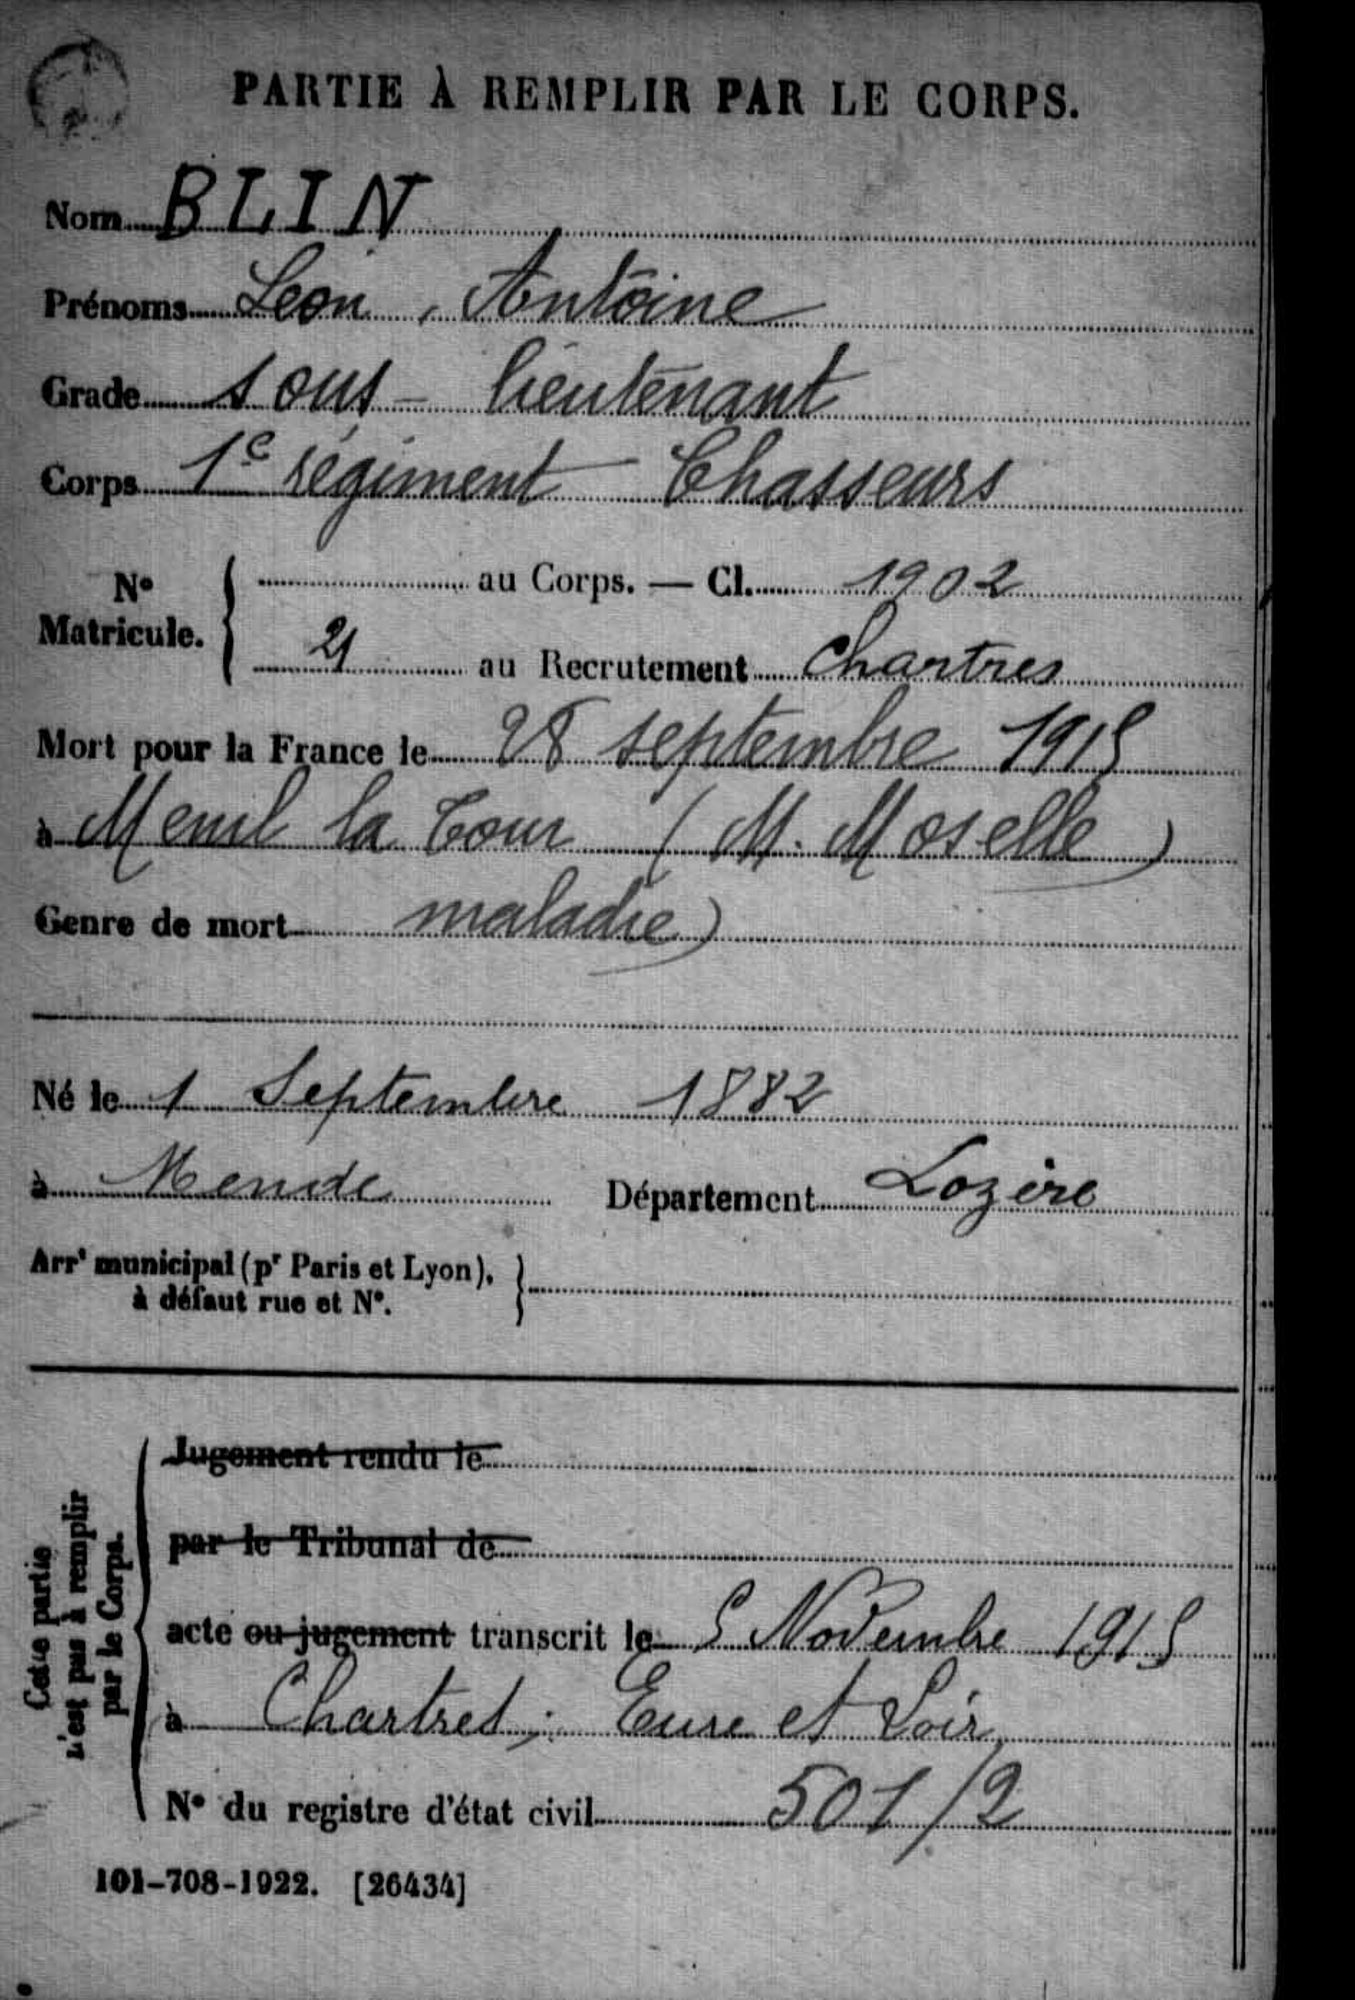 PARTIE À REMPLIR PAR LE CORPS.
Nom BLIN
Prénoms Léon, Antoine
Grade sous-lieutenant
Corps 1e régiment Chasseurs
N° Matricule. { au Corps. — Cl. 1902
21 au Recrutement Chartres
Mort pour la France le 28 septembre 1915
à Menil la Tour (M. Moselle)
Genre de mort maladie
Né le 1 Septembre 1882
à Mende Département Lozère
Arrt municipal (pr Paris et Lyon), }
à défaut rue et N°.
Cette partie
n'est pas à remplir
par le Corps.
Jugement rendu le
par le Tribunal de
acte ou jugement transcrit le 5 Novembre 1915
à Chartres; Eure et Loir
N° du registre d'état civil 501/2
101-708-1922. [26434]